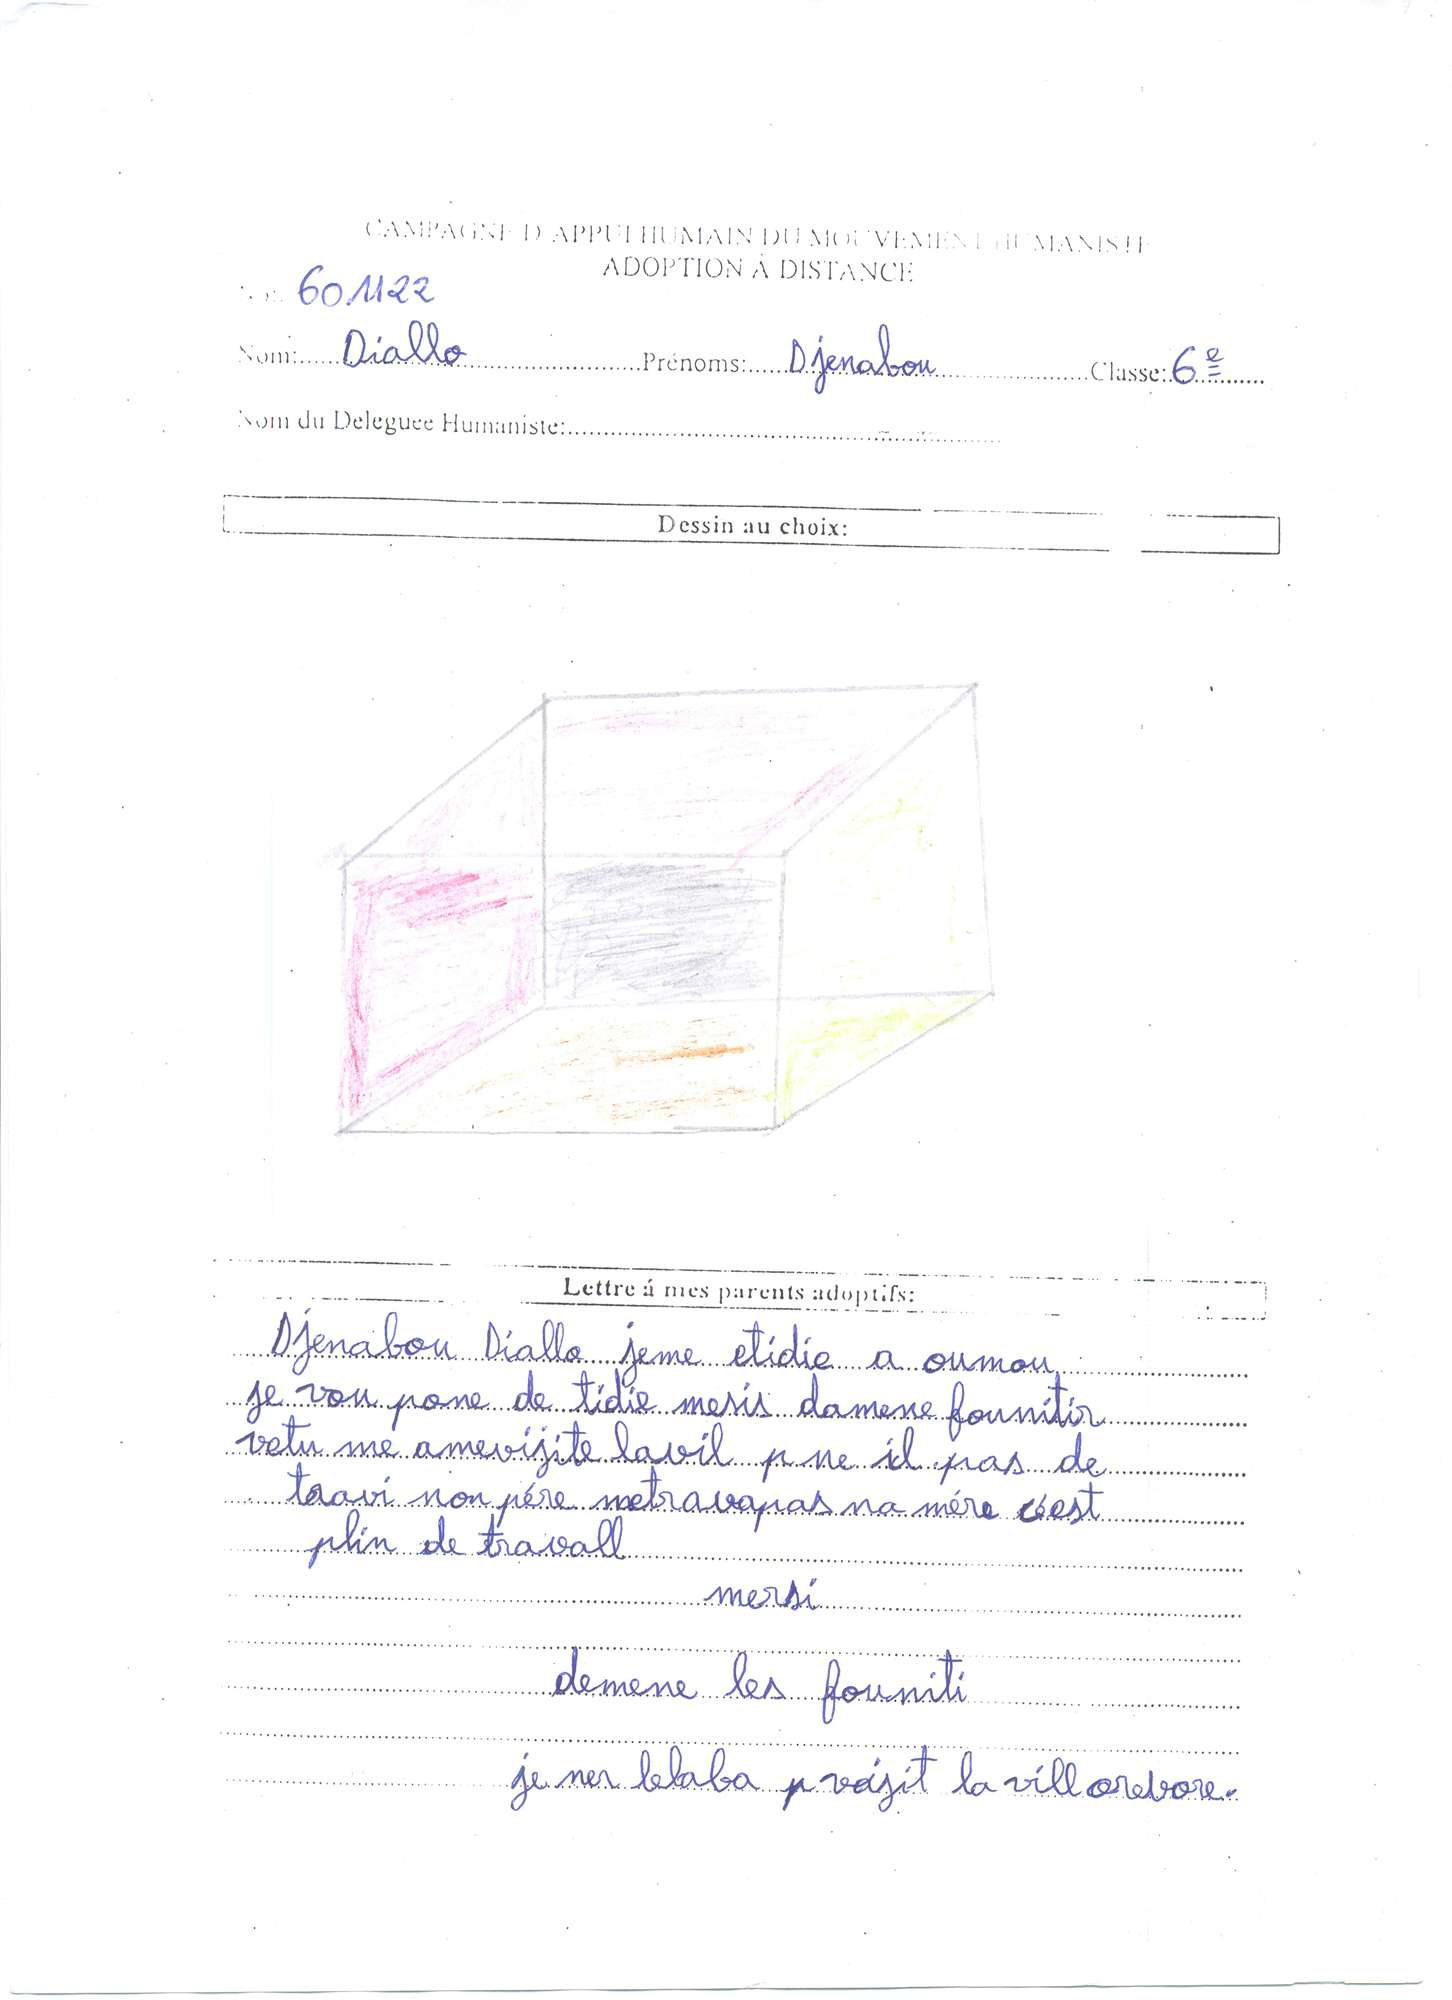 CAMPAGNE D'APPUI HUMAIN DU MOUVEMENT HUMANISTE
ADOPTION Á DISTANCE
No: 601122
Nom: Diallo Prénoms: Djenabou Classe: 6e
Nom du Deleguee Humaniste:
Dessin au choix:
Lettre á mes parents adoptifs:
Djenabou Diallo jeme etidie a oumou
je vou pone de tidie mesis damene founitir
vetu me amevijite lavil p ne il pas de
travi non pére metravapas na mére c'est
plin de travall
mersi
demene les founiti
je ner lelaba p vojit la vill orevore.